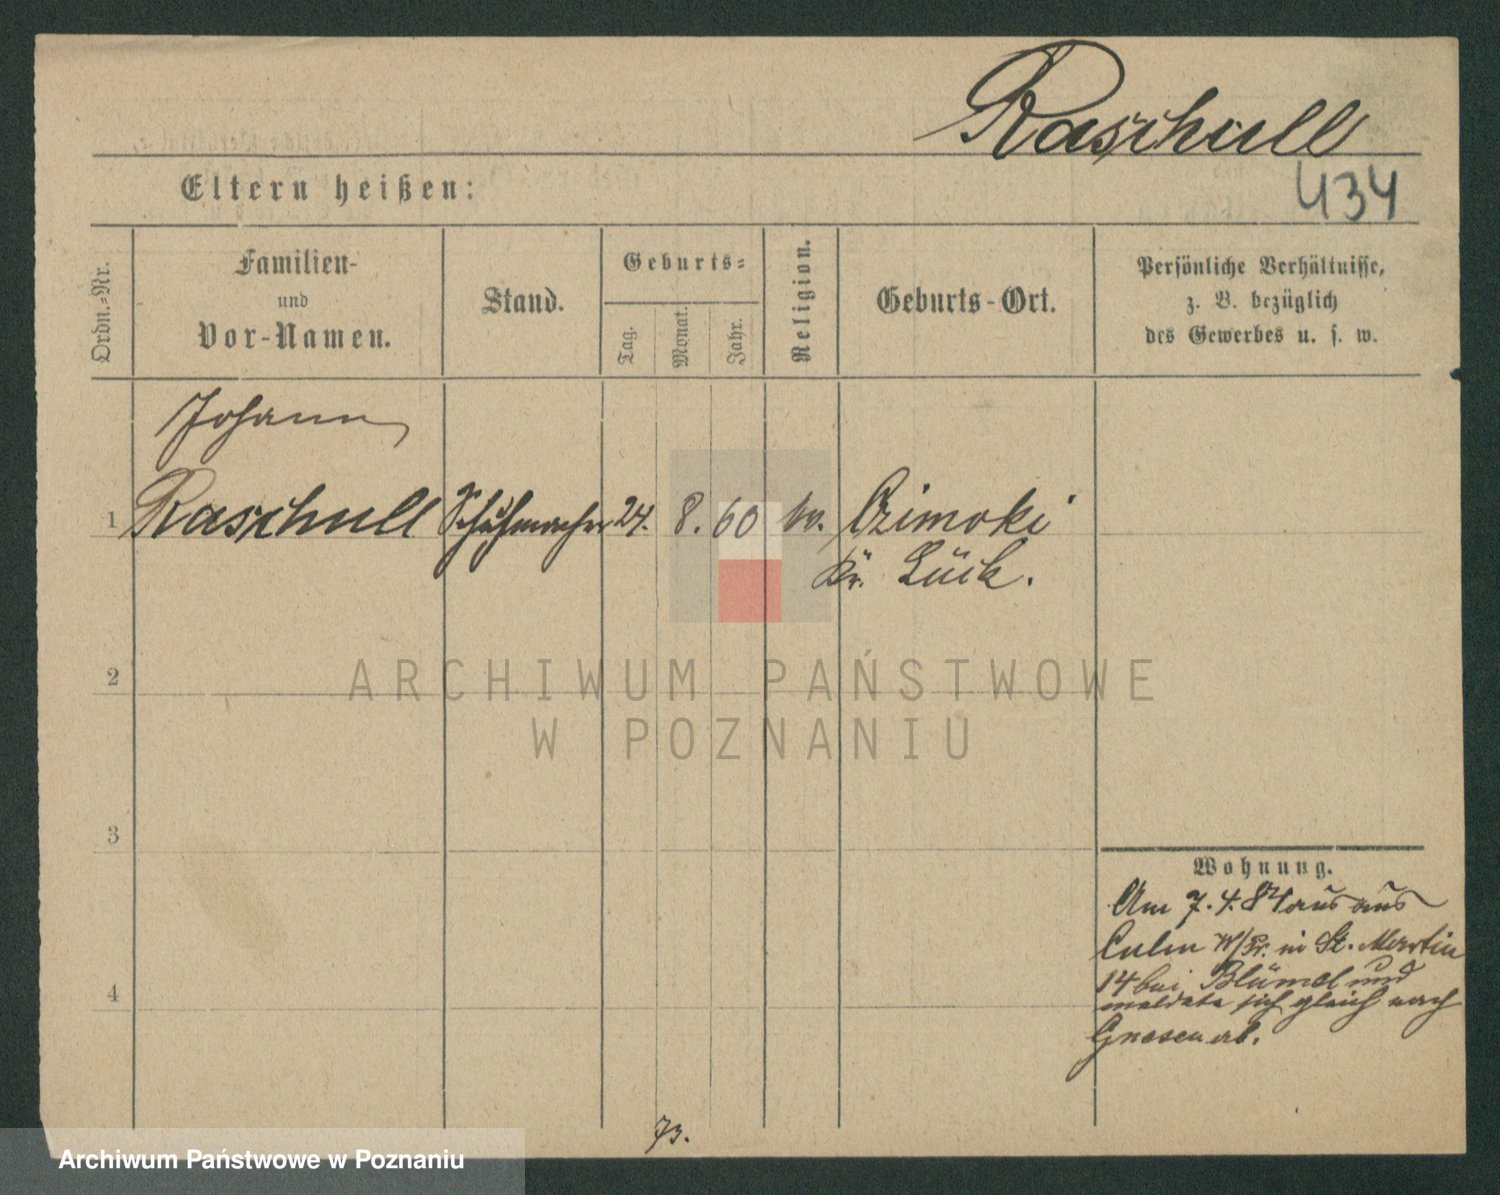 Raschull
Eltern heißen:
434
Ordn.=Nr.
Familien-
und
Vor-Namen.
Stand.
Geburts=
Tag.
Monat.
Jahr.
Religion.
Geburts-Ort.
Persönliche Verhältnisse,
z. B. bezüglich
des Gewerbes u. s. w.
Johann
1 Raschull Schuhmacher 24. 8. 60
Kr. Lück.
2
ARCHIWUM PAŃSTWOWE
W POZNANIU
3
Wohnung.
Am 7. 4. 84 aus
Culm W/Pr. in St. Martin
14 bei Blümel und
meldete sich gleich nach
4
Gnesen ab.
73.
Archiwum Państwowe w Poznaniu